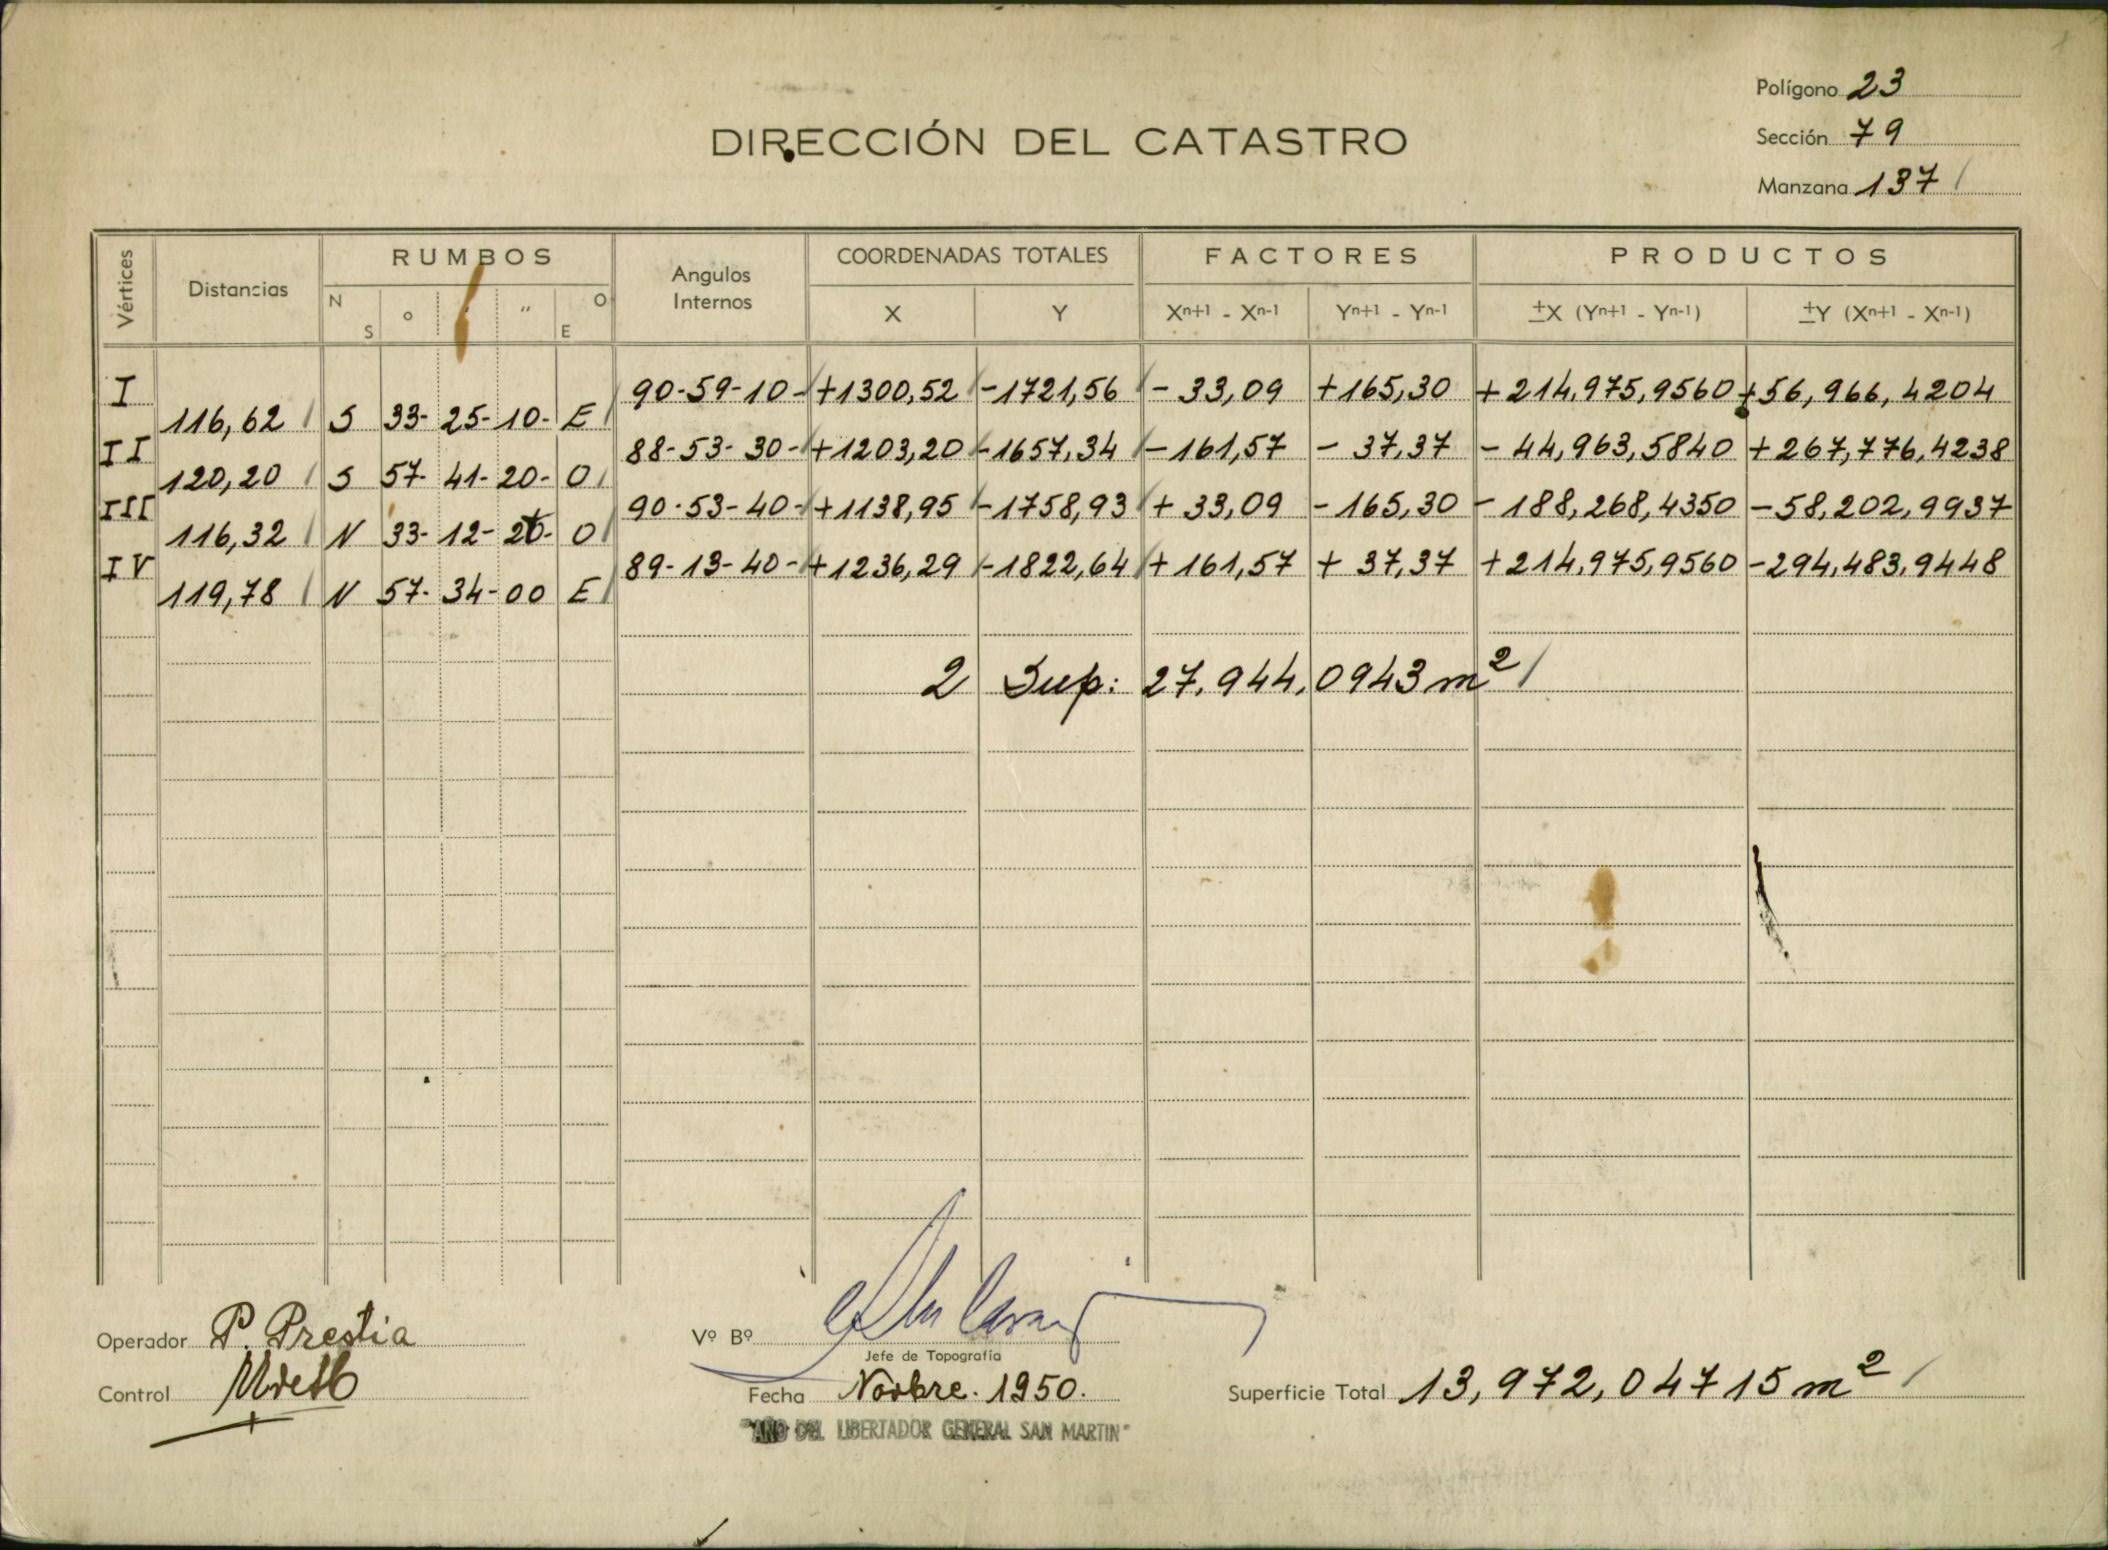 Polígono 23
DIRECCIÓN DEL CATASTRO
Sección 79
Manzana 137
Vértices Distancias RUMBOS Angulos Internos COORDENADAS TOTALES FACTORES PRODUCTOS
N S o ' " O E X Y Xn+1 - Xn-1 Yn+1 - Yn-1 ±X (Yn+1 - Yn-1) ±Y (Xn+1 - Xn-1)
I 90-59-10- +1300,52 -1721,56 - 33,09 +165,30 +214,975,9560 +56,966,4204
116,62 S 33- 25- 10- E
II 88-53-30- +1203,20 -1657,34 -161,57 - 37,37 - 44,963,5840 +267,776,4238
120,20 S 57- 41- 20- O
III 90-53-40- +1138,95 -1758,93 + 33,09 -165,30 - 188,268,4350 -58,202,9937
116,32 N 33- 12- 20- O
IV 89-13-40- +1236,29 -1822,64 +161,57 + 37,37 +214,975,9560 -294,483,9448
119,78 N 57- 34- 00 E
2 Sup: 27.944,0943 m²
Operador P. Prestia
Vº Bº
Jefe de Topografía
Control
Fecha Novbre. 1950.
Superficie Total 13,972,04715 m²
"AÑO DEL LIBERTADOR GENERAL SAN MARTIN"